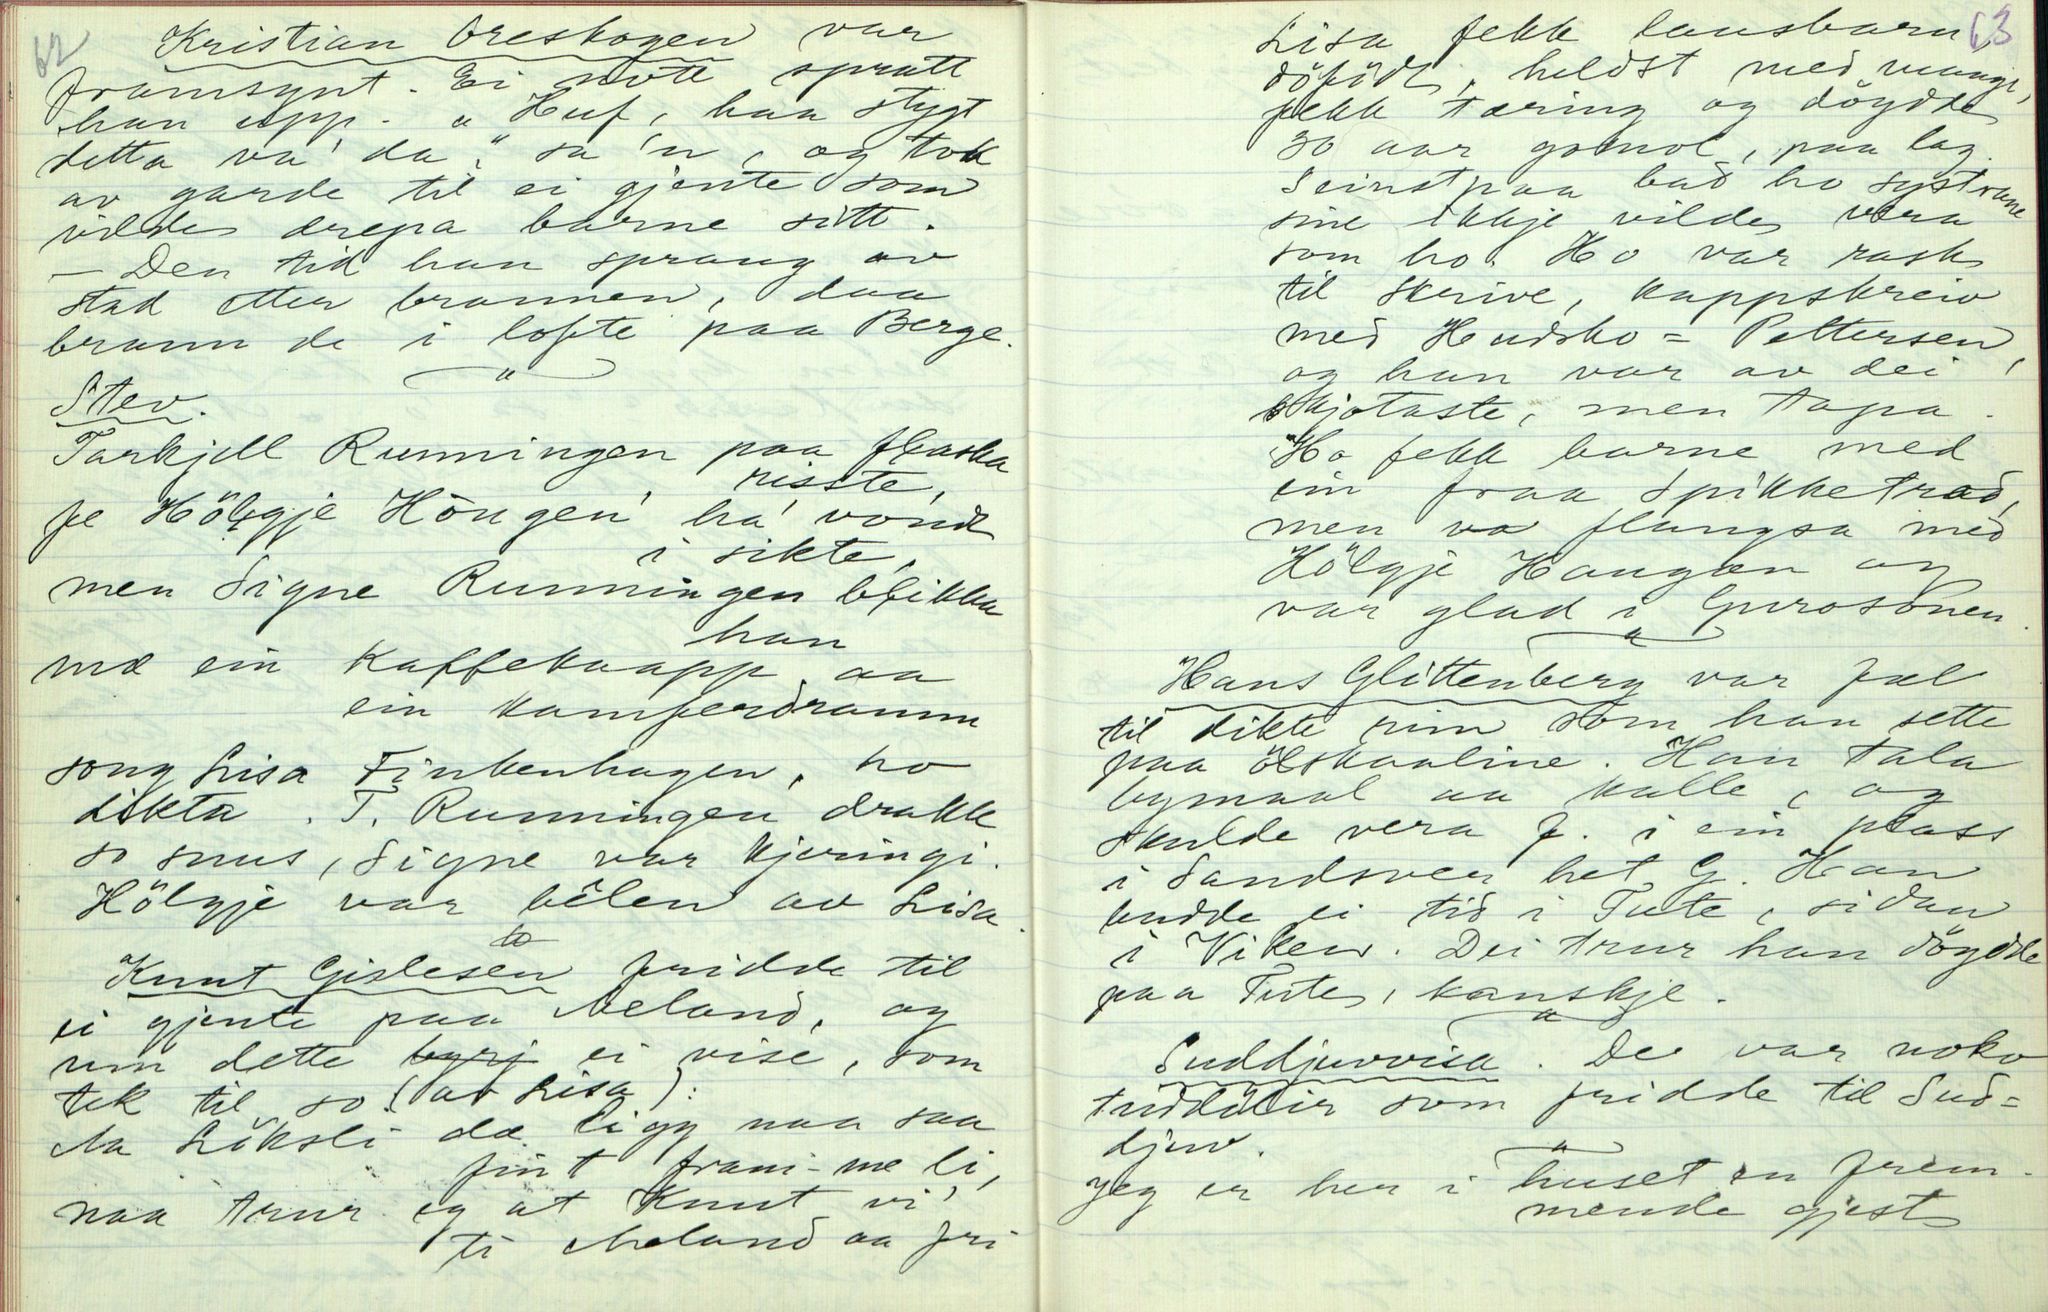 62
Kristian Oreskogen var
framsynt. Ei nott spratt
han upp. "Huf, haa stygt
detta va' da," sa'n, og tok
av garde til ei gjente som
vilde drepa barne sitt.
- Den tid han sprang av
stad etter brannen, daa
brann de i lofte paa Berge.
"
Stev.
Tarkjell Runningen paa flaska
risste,
fe Hölgje Höugen ha' vondt
i sikte,
men Signe Runningen blikka
han
mæ ein kaffekaapp aa
ein kamferdramm
song Lisa Finkenhagen, ho
dikta. T. Runningen drakk
so snus, Signe var kjeringi.
Hölgje var bêlen av Lisa.
Knut Gislesen fridde til
ei gjente paa Meland, og
um dette ei vise, som
tek til so (av Lisa):
Na Löksli dæ ligg naa saa
fint fram-me li,
naa trur eg at Knut vi'
ti Meland aa fri
63
Lisa fekk lausbarn
döfödt, heldst med mange,
fekk tæring og döydde
30 aar gomol, paa lag.
Seinst paa bad ho systrane
sine ikkje vilde vera
som ho. Ho var rask
til skrive, kappskreiv
med Hudsko-Pettersen,
og han var av dei
skjotaste, men tapa.
Ho fekk barne med
ein fraa Spikketrad,
men va flungsa med
Hölgje Haugen og
var glad i Gurosonen.
"
Hans Glittenberg var fæl
til dikte rim som han sette
paa ölskaaline. Han tala
bymaal aa kalle, og
skulde vera f. i ein plass
i Sandsver het G. Han
budde ei tid i Tute, sidan
i Viken. Dei trur han döydde
paa Tute, kanskje.
"
Suddjuvvisa. De var noko
som fridde til Sud-
djuv.
"
Jeg er her i huset en frem-
mende gjest